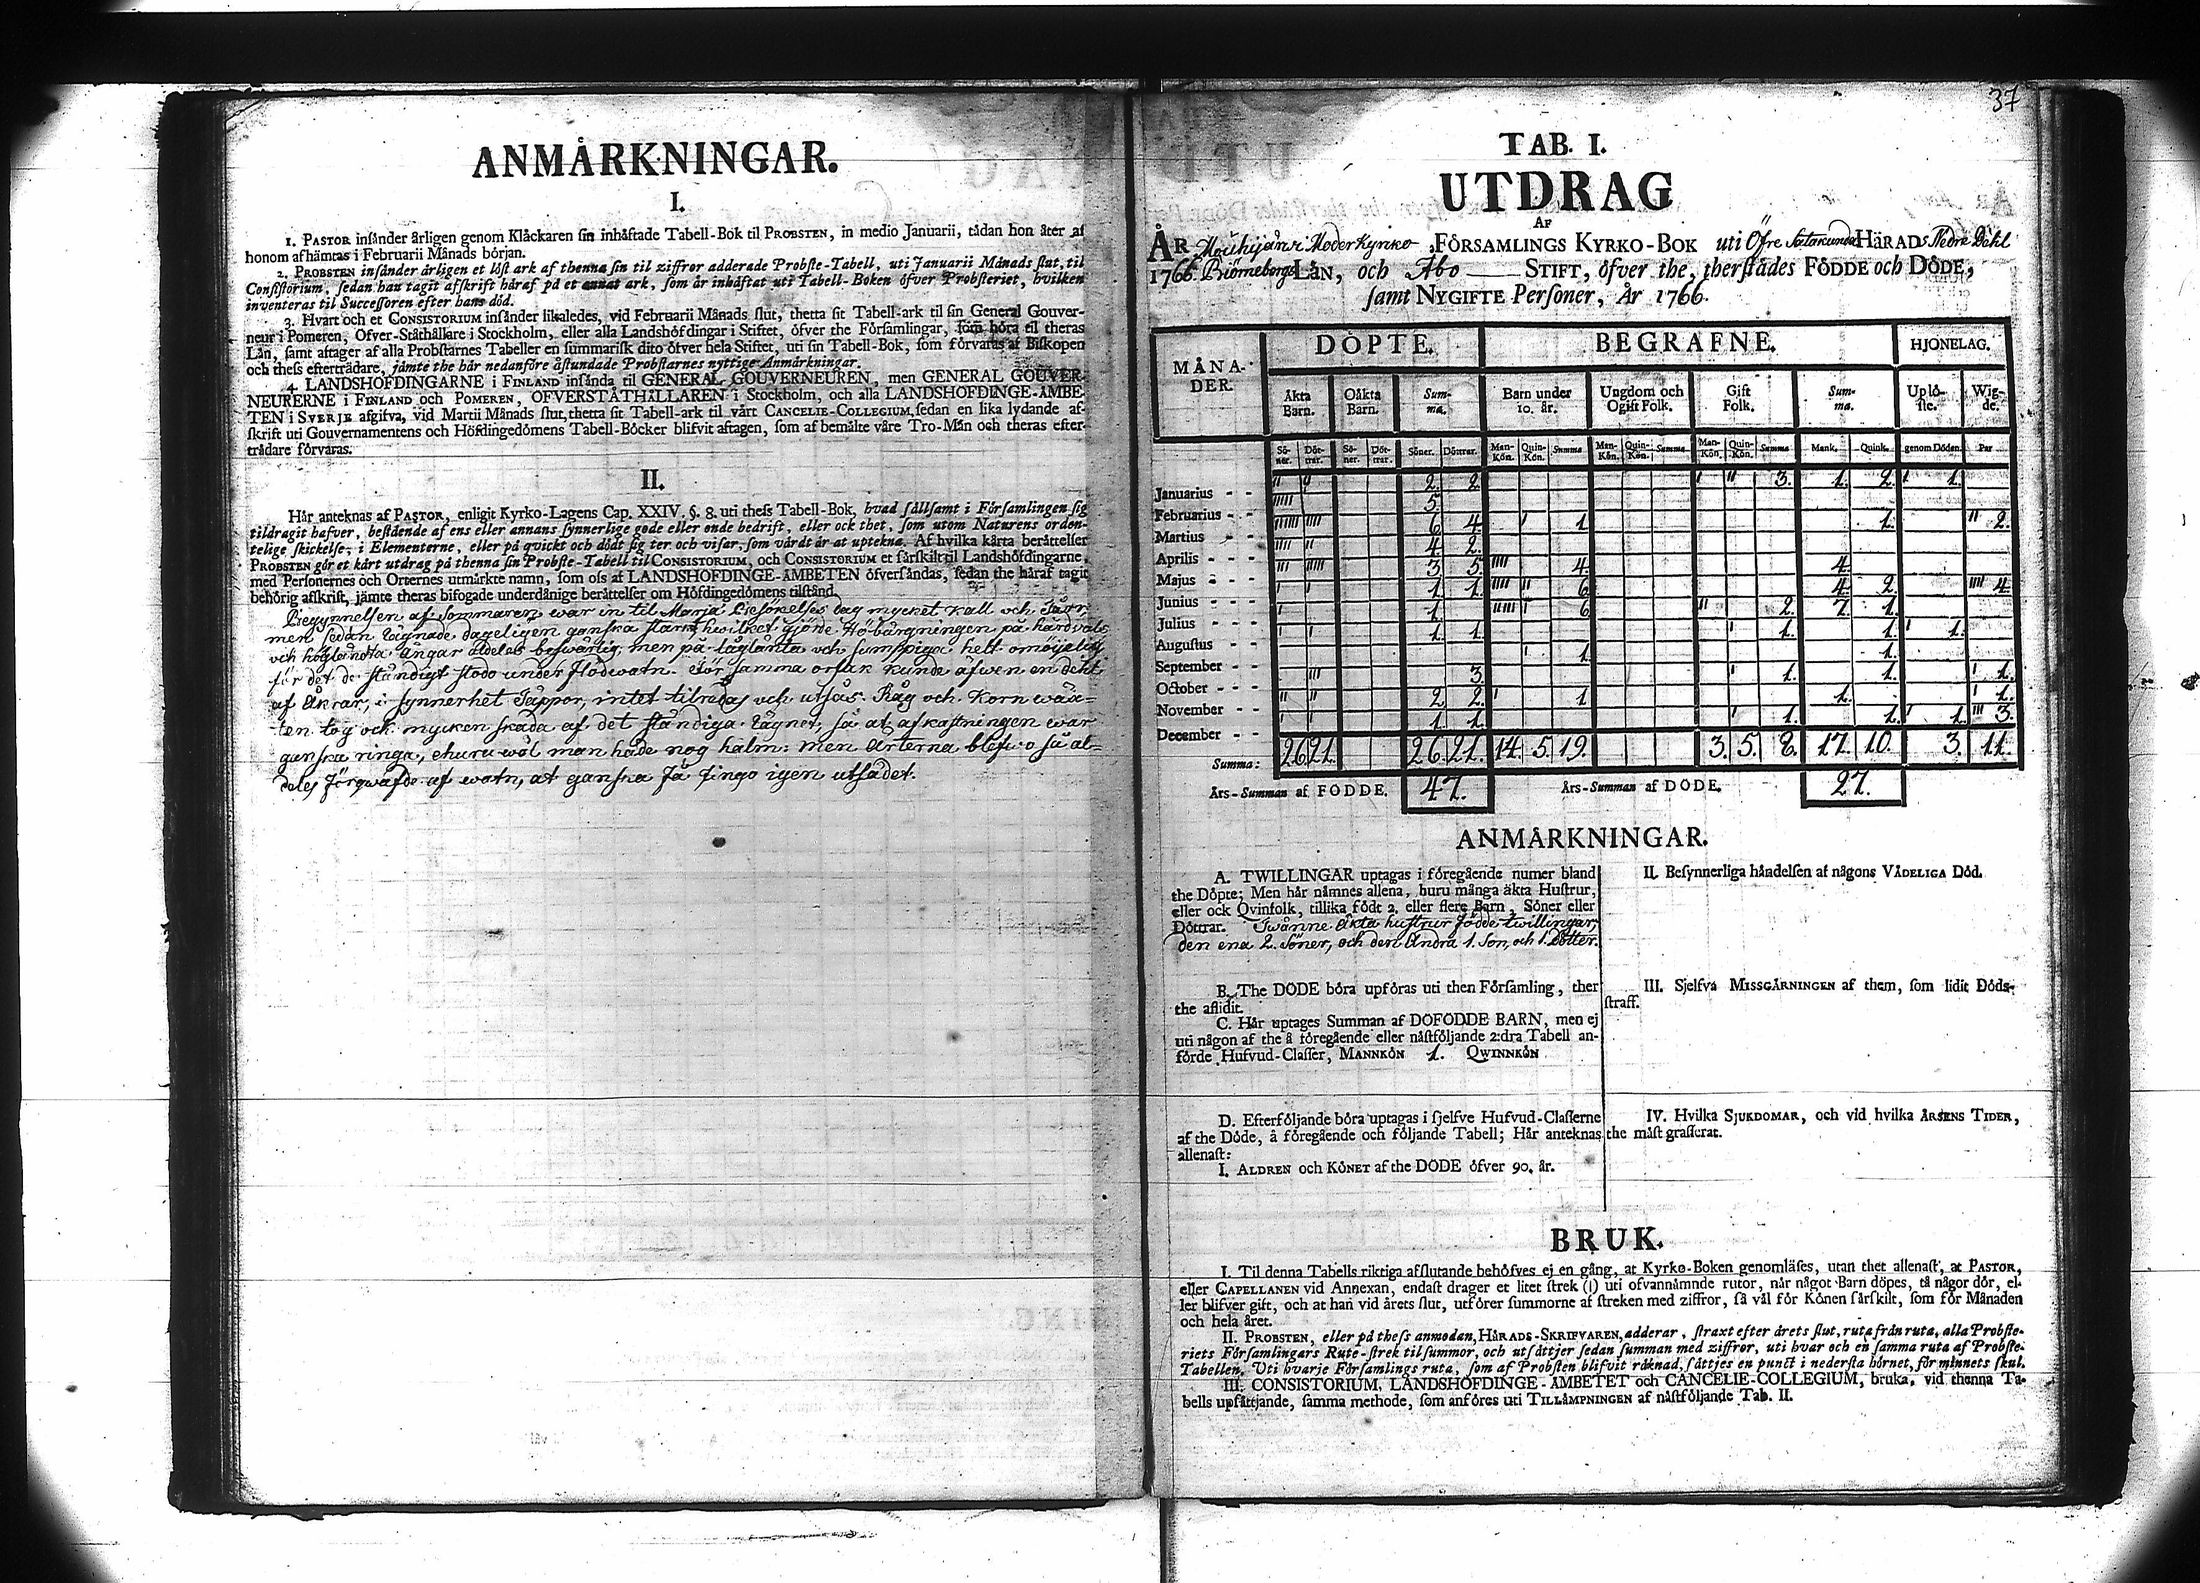 ANMÅRKNINGAR.
I.
1. PASTOR insånder årligen genom Klåckaren sin inhåftade Tabell-Bok til PROBSTEN, in medio Januarii, tådan hon åter af
honom afhåmtas i Februarii Månads början.
2. PROBSTEN insånder årligen et löst ark af thenna sin til ziffror adderade Probste-Tabell, uti Januarii Månads slut, til
Consistorium, sedan han tagit afskrift håraf på et annat ark, som år inhåftat uti Tabell-Boken öfver Probsteriet, hvilken
inventeras til Successoren efter hans död.
3. Hvart och et CONSISTORIUM insånder likaledes, vid Februarii Månads slut, thetta sit Tabell-ark til sin General Gouver-
neur i Pomeren, Öfver-Ståthållare i Stockholm, eller alla Landshöfdingar i Stiftet, öfver the Församlingar, som höra til theras
Lån, samt aftager af alla Probstarnes Tabeller en summarisk dito öfver hela Stiftet, uti sin Tabell-Bok, som förvaras af Biskopen
och thess eftertrådare, jåmte the hår nedanföre åstundade Probstarnes nyttige Anmårkningar.
4. LANDSHÖFDINGARNE i FINLAND insånda til GENERAL GOUVERNEUREN, men GENERAL GOUVER-
NEURERNE i FINLAND och POMEREN, ÖFVERSTÅTHÅLLAREN i Stockholm, och alla LANDSHÖFDINGE-ÅMBE-
TEN i SVERJE afgifva, vid Martii Månads slut, thetta sit Tabell-ark til vårt CANCELIE-COLLEGIUM, sedan en lika lydande af-
skrift uti Gouvernamentens och Höfdingedömens Tabell-Böcker blifvit aftagen, som af bemålte våre Tro-Mån och theras efter-
trådare förvaras.
II.
Hår anteknas af PASTOR, enligit Kyrko-Lagens Cap. XXIV. §. 8. uti thess Tabell-Bok, hvad sållsamt i Församlingen sig
tildragit hafver, bestående af ens eller annans synnerlige gode eller onde bedrift, eller ock thet, som utom Naturens orden-
telige skickelse, i Elementerne, eller på qvickt och dödt sig ter och visar, som vårdt år at uptekna. Af hvilka kårta beråttelser
PROBSTEN gör et kårt utdrag på thenna sin Probste-Tabell til CONSISTORIUM, och CONSISTORIUM et sårskilt til Landshöfdingarne,
med Personernes och Orternes utmårkte namn, som oss af LANDSHÖFDINGE-ÅMBETEN öfversåndas, sedan the håraf tagit
behörig afskrift, jåmte theras bifogade underdånige beråttelser om Höfdingedömens tilstånd.
Begynnelsen af Sommaren war in til Mariæ Besökelses dag mycket kall och Tårr
men sedan rägnade dageligen ganska starkt, hwilket gjorde Höbärgningen på hårdvals
och höglandta ängar aldeles beswärlig, men på låglänta och sumpiga helt omöijelig
för det de ständigt stodo under Flödwatn. För samma orsak kunde äfwen en dehl
af Åkrar, i synnerhet Täppor, intet tilredas och utsås. Råg och Korn wäx-
ten tog ock mycken skada af det ständiga Rägnet, så at afkastningen war
ganska ringa, ehuru wäl man hade nog halm: men Ärterna blefwo så al-
deles förqwafde af watn, at ganska få fingo igen utsädet.
37
TAB. I.
UTDRAG
AF
ÅR Mouhijärvi Moderkyrko FÖRSAMLINGS KYRKO-BOK uti Öfre Satakunda HÄRADs Nedre Dehl
1766. Biörneborgs LÅN, och Åbo STIFT, öfver the, therstådes FÖDDE och DÖDE,
samt NYGIFTE Personer, År 1766.
MÅNA-DER. DÖPTE. BEGRAFNE. HJONELAG.
Åkta Barn. Oåkta Barn. Sum-ma. Barn under 10. år. Ungdom och Ogift Folk. Gift Folk. Sum-ma. Uplö-ste. Wig-de.
Sö-ner. Döt-trar. Sö-ner. Döt-trar. Söner. Döttrar. Man-Kön. Quin-Kön. Summa Man-Kön. Quin-Kön. Summa Man-Kön. Quin-Kön. Summa Mank. Quink. genom Döden. Par
Januarius - - 2. 2. 3. 1. 2. 1.
Februarius - - 5.
Martius - - 6 4. 1. 1. 2.
Aprilis - - 4. 2.
Majus - - 3 5. 4. 4.
Junius - - 1. 1. 6. 4. 2. 4.
Julius - - 1. 6 2. 7. 1.
Augustus - - 1. 1. 1. 1. 1.
September - - 1. 1.
October - - 3. 1. 1. 1.
November - - 2 2. 1 1. 1.
December - - 1. 1. 1. 1. 1. 3.
Summa: 26 21. 26. 21. 14. 5. 19. 3. 5. 8. 17. 10. 3. 11.
Års-Summan af FÖDDE. 47. Års-Summan af DÖDE. 27.
ANMÅRKNINGAR.
A. TWILLINGAR uptagas i föregående numer bland
the Döpte; Men hår nåmnes allena, huru många åkta Hustrur,
eller ock Qvinfolk, tillika födt 2. eller flere Barn, Söner eller
Döttrar. Twänne äkta hustrur födde twillingar,
den ena 2. Söner, och den Andra 1. Son, och 1. Dotter.
B. The DÖDE böra upföras uti then Församling, ther
the aflidit.
C. Hår uptages Summan af DÖFÖDDE BARN, men ej
uti någon af the å föregående eller nåstföljande 2:dra Tabell an-
förde Hufvud-Classer, MANNKÖN 1. QWINNKÖN
D. Efterföljande böra uptagas i sjelfve Hufvud-Classerne
af the Döde, å föregående och följande Tabell; Hår anteknas
allenast:
I. ÅLDREN och KÖNET af the DÖDE öfver 90. år.
II. Besynnerliga håndelsen af någons VÅDELIGA Död.
III. Sjelfva MISSGÅRNINGEN af them, som lidit Döds-
straff.
IV. Hvilka SJUKDOMAR, och vid hvilka ÅRSENS TIDER,
the måst grasserat.
BRUK.
I. Til denna Tabells riktiga afslutande behöfves ej en gång, at Kyrko-Boken genomläses, utan thet allenast, at PASTOR,
eller CAPELLANEN vid Annexan, endast drager et litet strek (l) uti ofvannåmnde rutor, når något Barn döpes, tå någor dör, el-
ler blifver gift, och at han vid årets slut, utförer summorne af streken med ziffror, så vål för Könen sårskilt, som för Månaden
och hela året.
II. PROBSTEN, eller på thess anmodan, HÅRADS-SKRIFVAREN, adderar, straxt efter årets slut, ruta från ruta, alla Probste-
riets Församlingars Rute-strek til summor, och utsåttjer sedan summan med ziffror, uti hvar och en samma ruta af Probste-
Tabellen. Uti hvarje Församlings ruta, som af Probsten blifvit råknad, såttjes en punct i nedersta hörnet, för minnets skul.
III. CONSISTORIUM, LANDSHÖFDINGE-ÅMBETET och CANCELIE-COLLEGIUM, bruka, vid thenna Ta-
bells upsåttjande, samma methode, som anföres uti TILLÅMPNINGEN af nåstföljande Tab. II.